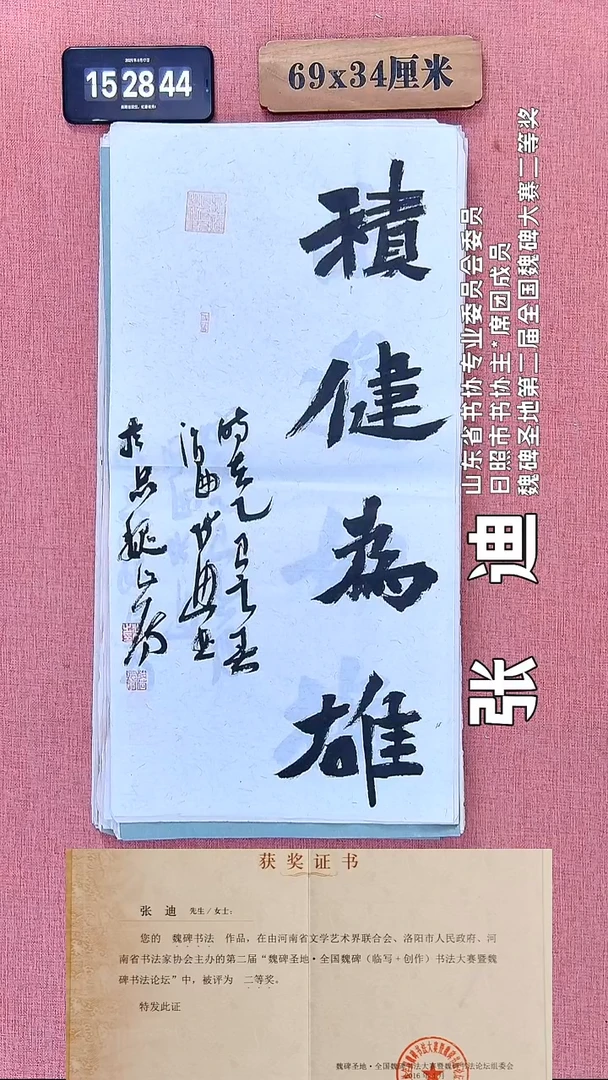 15 28 44
69x34厘米
積健為雄
时在乙巳之春
於品魏山房
山东省书协专业委员会委员
日照市书协主*席团成员
魏碑圣地第二届全国魏碑大赛二等奖
张 迪
获奖证书
张 迪 先生/女士:
您的 魏碑书法 作品，在由河南省文学艺术界联合会、洛阳市人民政府、河
南省书法家协会主办的第二届“魏碑圣地·全国魏碑（临写+创作）书法大赛暨魏
碑书法论坛”中，被评为 二等奖。
特发此证
魏碑圣地·全国魏碑书法大赛暨魏碑书法论坛组委会
2016年